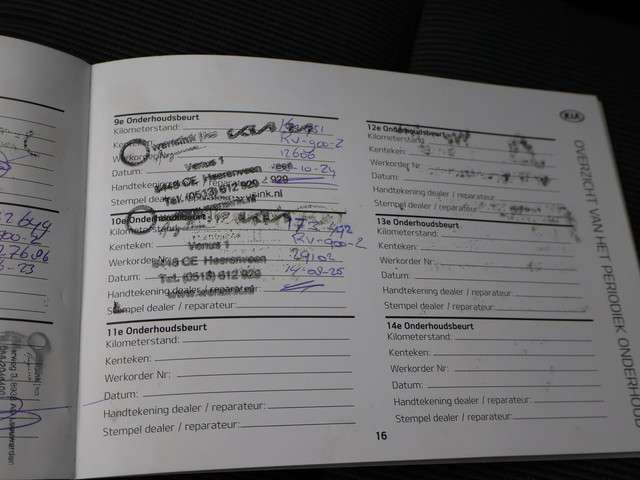 9e Onderhoudsbeurt
Kilometerstand:
Kenteken: RV-900-2
Werkorder Nr: 12606
Datum: Venus 1 -10-24
Handtekening dealer / reparateur: 8448 CE Heerenveen
Stempel dealer / reparateur: Tel. (0513) 612 929
10e Onderhoudsbeurt
Kilometerstand: 173.492
Kenteken: Venus 1 RV-900-2
Werkorder Nr: 8448 CE Heerenveen 29102
Datum: Tel. (0513) 612 929 14-08-25
Handtekening dealer / reparateur:
Stempel dealer / reparateur:
11e Onderhoudsbeurt
Kilometerstand:
Kenteken:
Werkorder Nr:
Datum:
Handtekening dealer / reparateur:
Stempel dealer / reparateur:
12e Onderhoudsbeurt
Kilometerstand:
Kenteken:
Werkorder Nr:
Datum:
Handtekening dealer / reparateur:
Stempel dealer / reparateur:
13e Onderhoudsbeurt
Kilometerstand:
Kenteken:
Werkorder Nr:
Datum:
Handtekening dealer / reparateur:
Stempel dealer / reparateur:
14e Onderhoudsbeurt
Kilometerstand:
Kenteken:
Werkorder Nr:
Datum:
Handtekening dealer / reparateur:
Stempel dealer / reparateur:
16
KIA
OVERZICHT VAN HET PERIODIEK ONDERHOUD